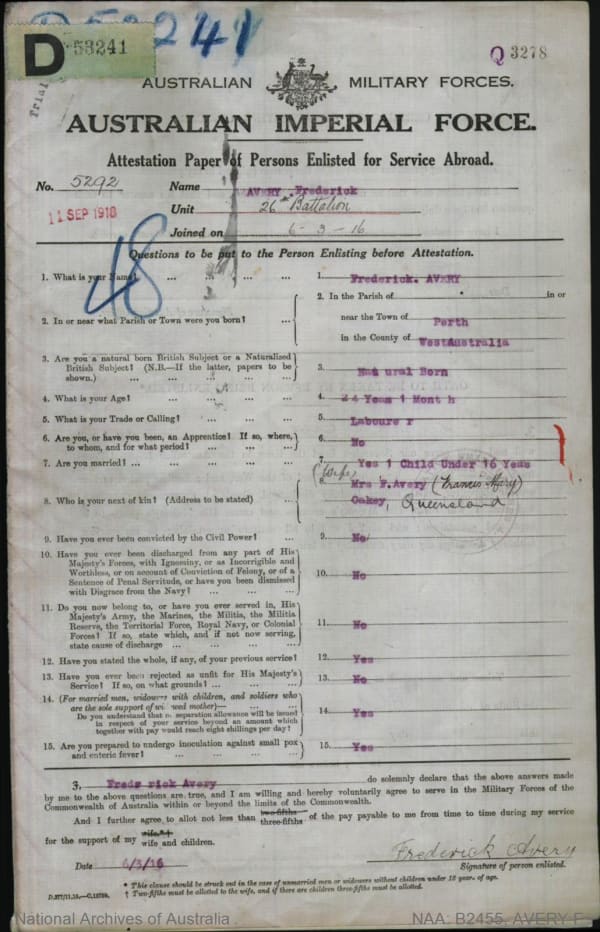 D 53241
D 53241
Q 3278
Trial
AUSTRALIAN MILITARY FORCES.
AUSTRALIAN IMPERIAL FORCE.
Attestation Paper of Persons Enlisted for Service Abroad.
No. 5292 Name AVERY .Frederick
11 SEP 1918 Unit 26th Battalion
Joined on 6-3-16
48
Questions to be put to the Person Enlisting before Attestation.
1. What is your Name? ... ... ... ... 1. Frederick. AVERY
2. In or near what Parish or Town were you born? ... 2. In the Parish of in or
near the Town of Perth
in the County of WestAustralia
3. Are you a natural born British Subject or a Naturalized
British Subject? (N.B.—If the latter, papers to be
shown.) ... ... ... ... ... 3. Natural Born
4. What is your Age? ... ... ... ... 4. 24 Years 1 Mont h
5. What is your Trade or Calling? ... ... ... 5. Laboure r
6. Are you, or have you been, an Apprentice? If so, where,
to whom, and for what period? ... ... ... 6. No
7. Are you married? ... ... ... ... ... 7. Yes 1 Child Under 16 Yeas
8. Who is your next of kin? (Address to be stated) ... 8. (Wife) Mrs F.Avery (Francis Mary)
Oakey, Queensland
9. Have you ever been convicted by the Civil Power? ... 9. No
10. Have you ever been discharged from any part of His
Majesty's Forces, with Ignominy, or as Incorrigible and
Worthless, or on account of Conviction of Felony, or of a
Sentence of Penal Servitude, or have you been dismissed
with Disgrace from the Navy? ... ... ... 10. No
11. Do you now belong to, or have you ever served in, His
Majesty's Army, the Marines, the Militia, the Militia
Reserve, the Territorial Force, Royal Navy, or Colonial
Forces? If so, state which, and if not now serving,
state cause of discharge ... ... ... ... 11. No
12. Have you stated the whole, if any, of your previous service? 12. Yes
13. Have you ever been rejected as unfit for His Majesty's
Service? If so, on what grounds? ... ... ... 13. No
14. (For married men, widowers with children, and soldiers who
are the sole support of widowed mother)— ... ...
Do you understand that no separation allowance will be issued
in respect of your service beyond an amount which
together with pay would reach eight shillings per day? 14. Yes
15. Are you prepared to undergo inoculation against small pox
and enteric fever? ... ... ... ... 15. Yes
I, Frede rick Avery do solemnly declare that the above answers made
by me to the above questions are true, and I am willing and hereby voluntarily agree to serve in the Military Forces of the
Commonwealth of Australia within or beyond the limits of the Commonwealth.
And I further agree to allot not less than two-fifths three-fifths of the pay payable to me from time to time during my service
for the support of my wife*† wife and children.
Date 6/3/16 Frederick Avery
Signature of person enlisted.
* This clause should be struck out in the case of unmarried men or widowers without children under 18 years of age.
† Two-fifths must be allotted to the wife, and if there are children three-fifths must be allotted.
National Archives of Australia NAA: B2455, AVERY F